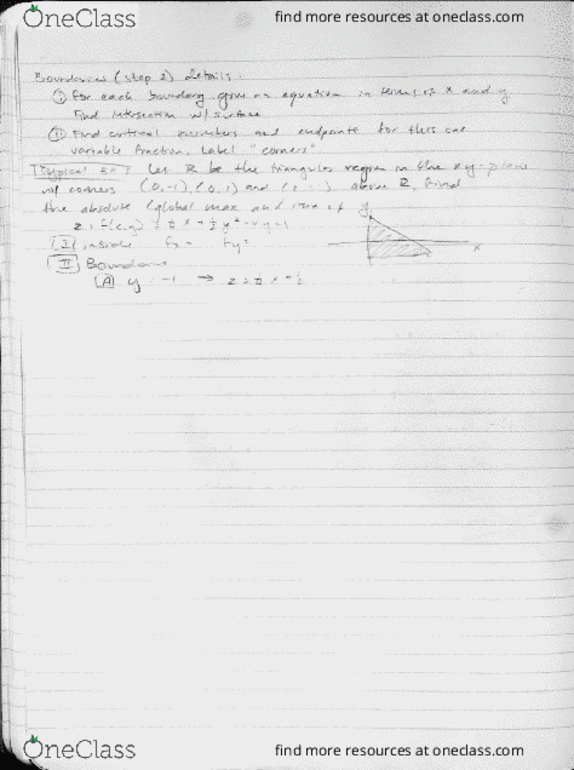 OneClass
find more resources at oneclass.com
Boundaries (step 2) details:
① For each boundary give an equation in terms of x and y
Find intersection w/ surface
② Find critical numbers and endpoints for this one
variable function. Label "corners"
Typical Ex. Let R be the triangular region in the xy-plane
w/ corners (0,-1), (0,1) and above R, find
the absolute (global max and min of
z = f(x,y)
y
x
I inside fx = fy =
II Boundaries
A y = -1 → z =
OneClass
find more resources at oneclass.com